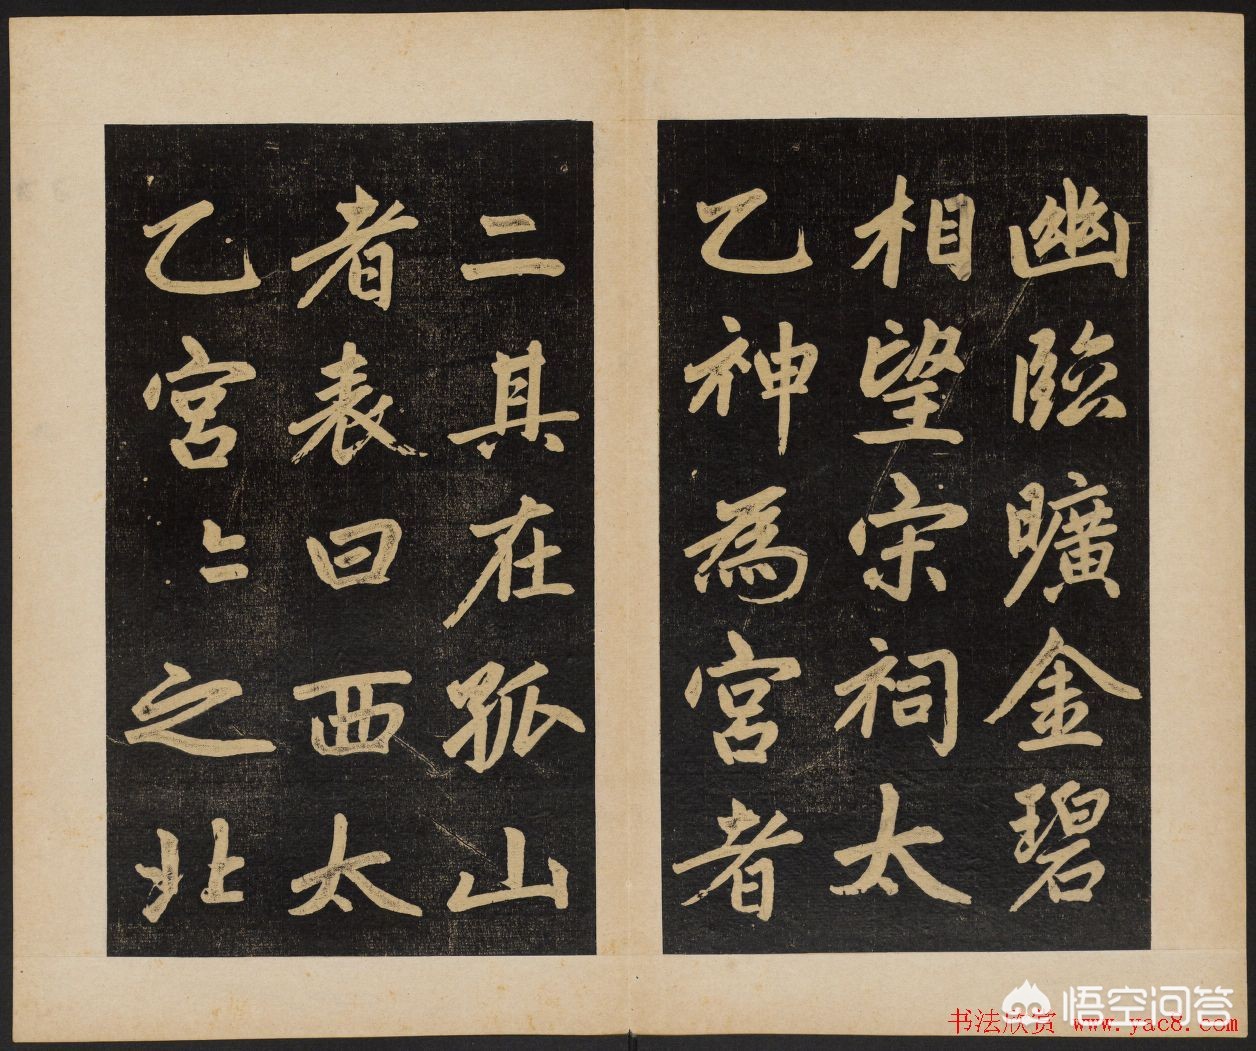 幽臨曠金碧
相望宋祠太
乙神為宮者
二其在孤山
者表曰西太
乙宮〻之北
悟空问答
书法欣赏 www.yac8.com